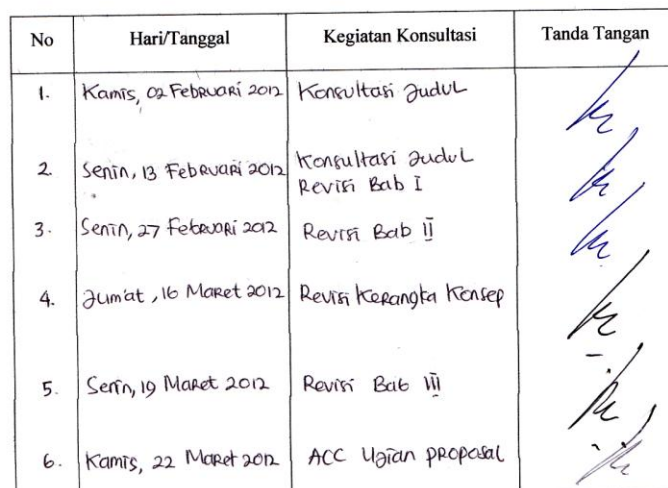 No Hari/Tanggal Kegiatan Konsultasi Tanda Tangan
1. Kamis, 02 Februari 2012 Konsultasi Judul
2. Senin, 13 Februari 2012 Konsultasi Judul
Revisi Bab I
3. Senin, 27 Februari 2012 Revisi Bab II
4. Jum'at, 16 Maret 2012 Revisi Kerangka Konsep
5. Senin, 19 Maret 2012 Revisi Bab III
6. Kamis, 22 Maret 2012 ACC Ujian proposal